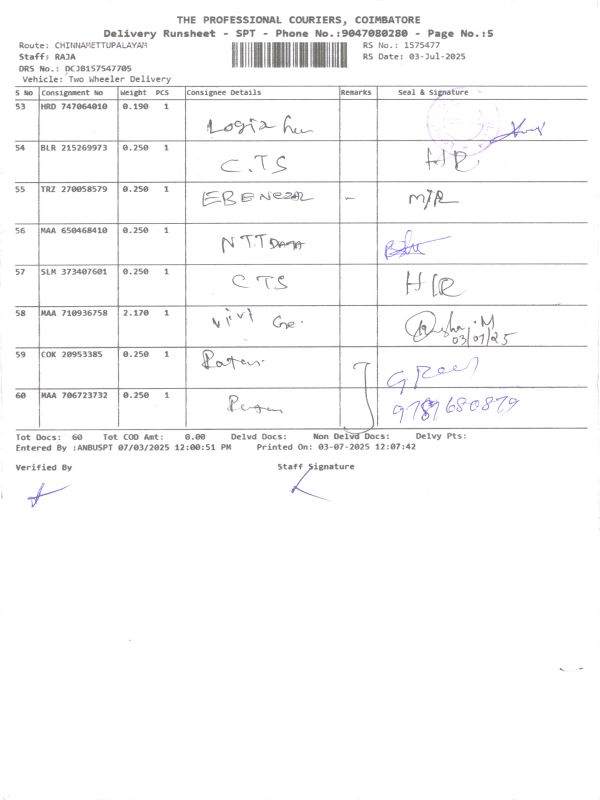 THE PROFESSIONAL COURIERS, COIMBATORE
Delivery Runsheet - SPT - Phone No.:9047080280 - Page No.:5
Route: CHINNAMETTUPALAYAM RS No.: 1575477
Staff: RAJA RS Date: 03-Jul-2025
DRS No.: DCJB157547705
Vehicle: Two Wheeler Delivery
S No Consignment No Weight PCS Consignee Details Remarks Seal & Signature
53 HRD 747064010 0.190 1
54 BLR 215269973 0.250 1 C.TS HR
55 TRZ 270058579 0.250 1 EBENEZAR - M/R
56 MAA 650468410 0.250 1 NTT DATA
57 SLM 373407601 0.250 1 CTS HR
58 MAA 710936758 2.170 1 03/07/25
59 COK 20953385 0.250 1
60 MAA 706723732 0.250 1 9789680879
Tot Docs: 60 Tot COD Amt: 0.00 Delvd Docs: Non Delvd Docs: Delvy Pts:
Entered By :ANBUSPT 07/03/2025 12:00:51 PM Printed On: 03-07-2025 12:07:42
Verified By Staff Signature